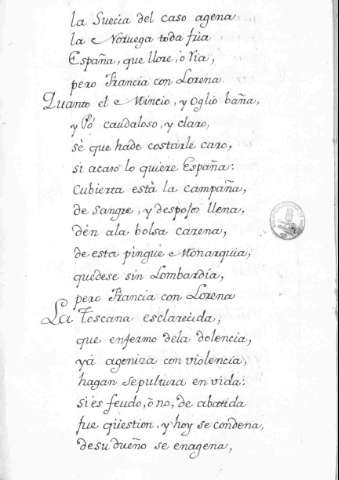 la Suecia del caso agena
la Noruega toda fria
España, que llore, ò ria,
pero Francia con Lorena
Quanto el Mincio, y Oglio baña,
y Pó caudaloso, y claro,
sè que hade costarle caro,
si acaso lo quiere España:
Cubierta està la campaña,
de sangre, y despojos llena,
dèn ala bolsa carena,
de esta pingue Monarquia;
quedese sin Lombardia,
pero Francia con Lorena
La Toscana esclarecida,
que enfermo dela dolencia,
yà agoniza con violencia,
hagan sepultura en vida:
si es feudo, ò no, de abatida
fue question, y hoy se condena,
de su dueño se enagena,